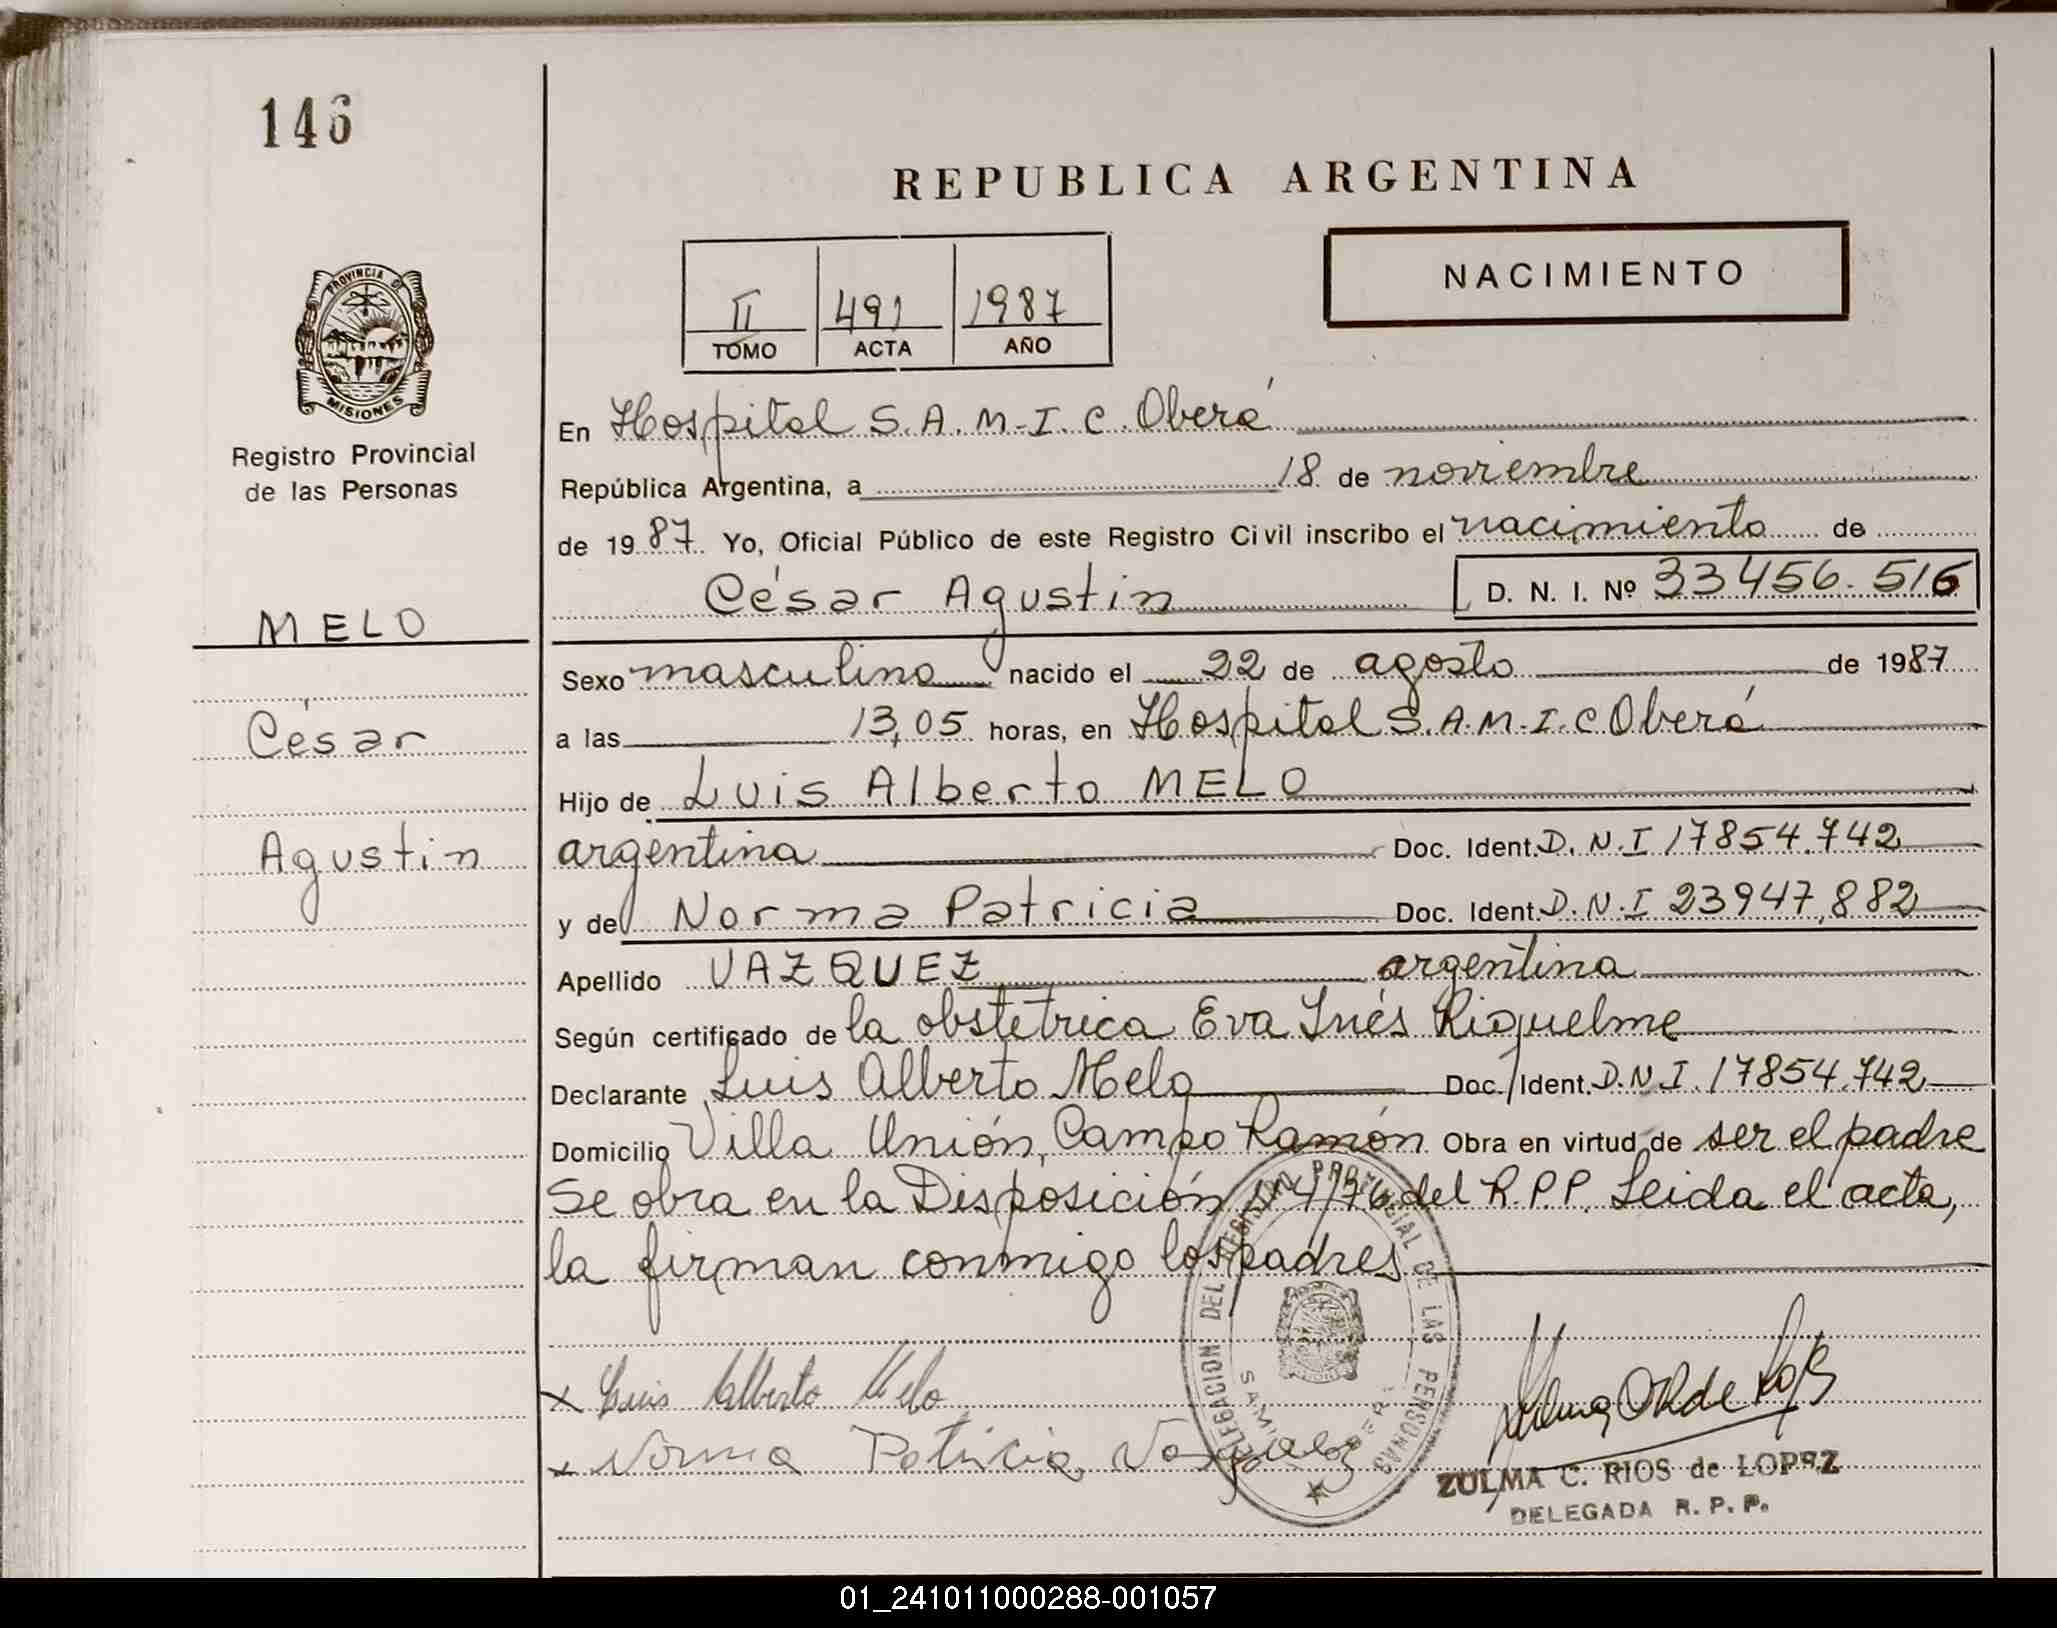 146
REPUBLICA ARGENTINA
NACIMIENTO
II 491 1987
TOMO ACTA AÑO
PROVINCIA DE
MISIONES
Registro Provincial
de las Personas
MELO
César
Agustin
En Hospital S.A.M.I.C. Oberá
República Argentina, a 18 de noviembre
de 1987 Yo, Oficial Público de este Registro Civil inscribo el nacimiento de
César Agustin D. N. I. Nº 33456.516
Sexo masculino nacido el 22 de agosto de 1987
a las 13,05 horas, en Hospital S.A.M.I.C Oberá
Hijo de Luis Alberto MELO
argentina Doc. Ident. D.N.I 17854.742
y de Norma Patricia Doc. Ident. D.N.I 23947.882
Apellido VAZQUEZ argentina
Según certificado de la obstetrica Eva Inés Riquelme
Declarante Luis Alberto Melo Doc. Ident. D.N.I. 17854.742
Domicilio Villa Unión, Campo Ramón Obra en virtud de ser el padre
Se obra en la Disposición 14/76 del R.P.P. Leida el acta,
la firman conmigo los padres
DELEGACION DEL REGISTRO PROVINCIAL DE LAS PERSONAS
x Luis Alberto Melo
x Norma Patricia Vazquez
ZULMA C. RIOS de LOPEZ
DELEGADA R. P. P.
01_241011000288-001057